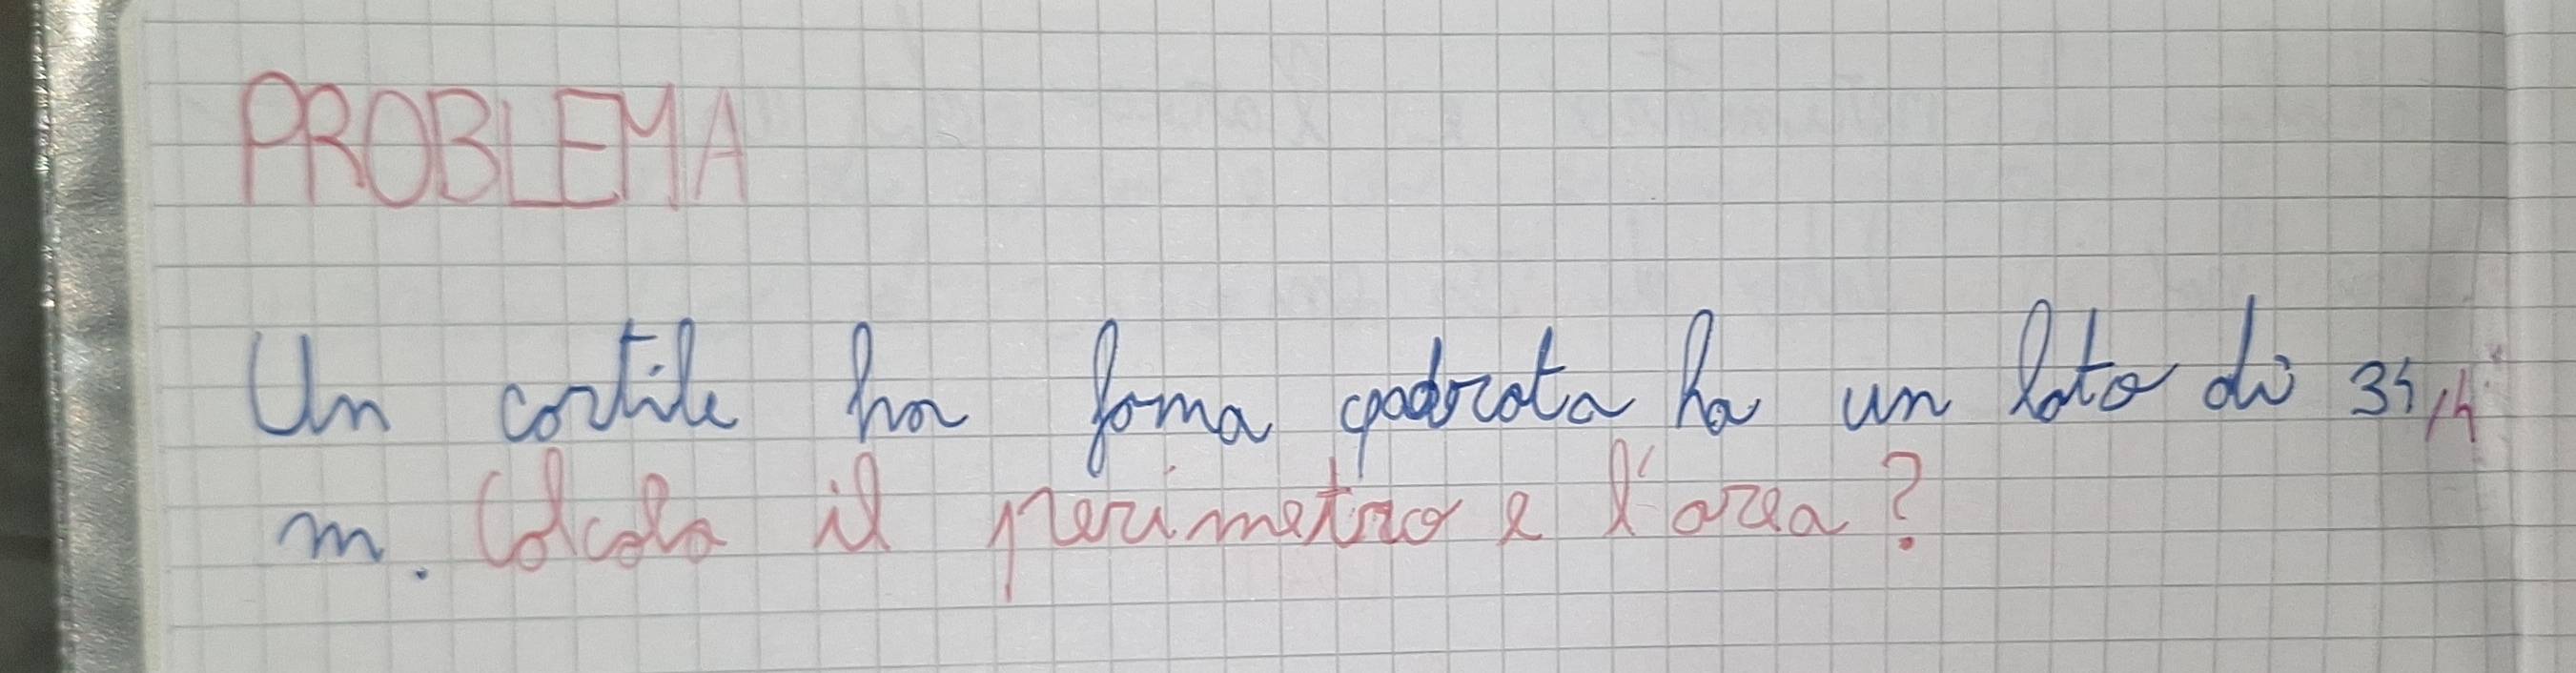 PROBLEMA
Un cortile ha foma quadrata ha un lato di
m. Calcola il perimetro e l'area?